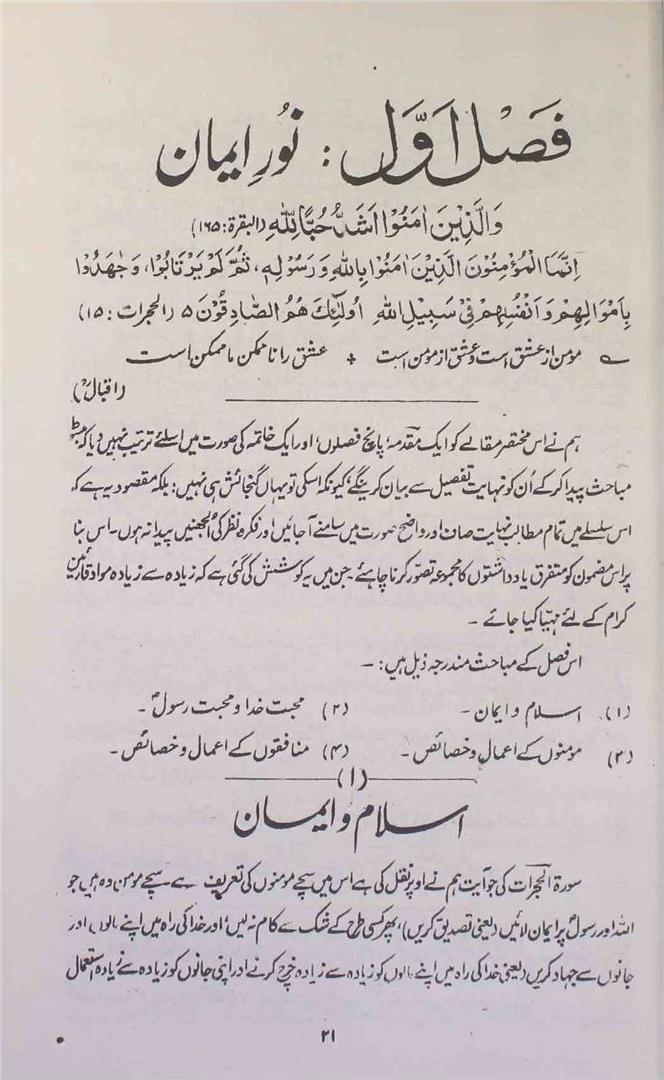 فَصْل اَوَّل : نُورِ ایمان
وَالَّذِیْنَ اٰمَنُوْا اَشَدُّ حُبًّا لِّلّٰہِ (البقرۃ: ۱۶۵)
اِنَّمَا الْمُؤْمِنُوْنَ الَّذِیْنَ اٰمَنُوْا بِاللّٰہِ وَرَسُوْلِہٖ، ثُمَّ لَمْ یَرْتَابُوْا، وَجٰھَدُوْا
بِاَمْوَالِھِمْ وَاَنْفُسِھِمْ فِیْ سَبِیْلِ اللّٰہِ اُولٰٓئِکَ ھُمُ الصَّادِقُوْنَ ۵ (الحجرات : ۱۵)
؎ مؤمن از عشق است و عشق از مؤمن است + عشق را ناممکن ما ممکن است
(اقبالؒ)
ہم نے اس مختصر مقالے کو ایک مقدمہ، پانچ فصلوں، اور ایک خاتمہ کی صورت میں اسلئے ترتیب نہیں دیا کہ
مباحث پیدا کر کے اُن کو نہایت تفصیل سے بیان کرینگے، کیونکہ اسکی تو یہاں گنجائش ہی نہیں: بلکہ مقصود یہ ہے کہ
اس سلسلے میں تمام مطالب نہایت صاف اور واضح صورت میں سامنے آ جائیں اور فکر و نظر کی اُلجھنیں پیدا نہ ہوں۔ اس بنا
پر اس مضمون کو متفرق یادداشتوں کا مجموعہ تصوّر کرنا چاہئے ۔ جن میں یہ کوشش کی گئی ہے کہ زیادہ سے زیادہ مواد قارئین
کرام کے لئے مہیّا کیا جائے ۔
اس فصل کے مباحث مندرجہ ذیل ہیں: ۔
(۱) اسلام و ایمان ۔ (۲) محبت خدا و محبت رسولؐ ۔
(۳) مومنوں کے اعمال و خصائص ۔ (۴) منافقوں کے اعمال و خصائص ۔
(۱)
اسلام و ایمان
سورۃ الحجرات کی جو آیت ہم نے اوپر نقل کی ہے اس میں سچے مومنوں کی تعریف ہے سچے مومن وہ ہیں جو
اللہ اور رسولؐ پر ایمان لائیں (یعنی تصدیق کریں)، پھر کسی طرح کے شک سے کام نہ لیں، اور خدا کی راہ میں اپنے مالوں اور
جانوں سے جہاد کریں (یعنی خدا کی راہ میں اپنے مالوں کو زیادہ سے زیادہ خرچ کرنے اور اپنی جانوں کو زیادہ سے زیادہ استعمال
۲۱